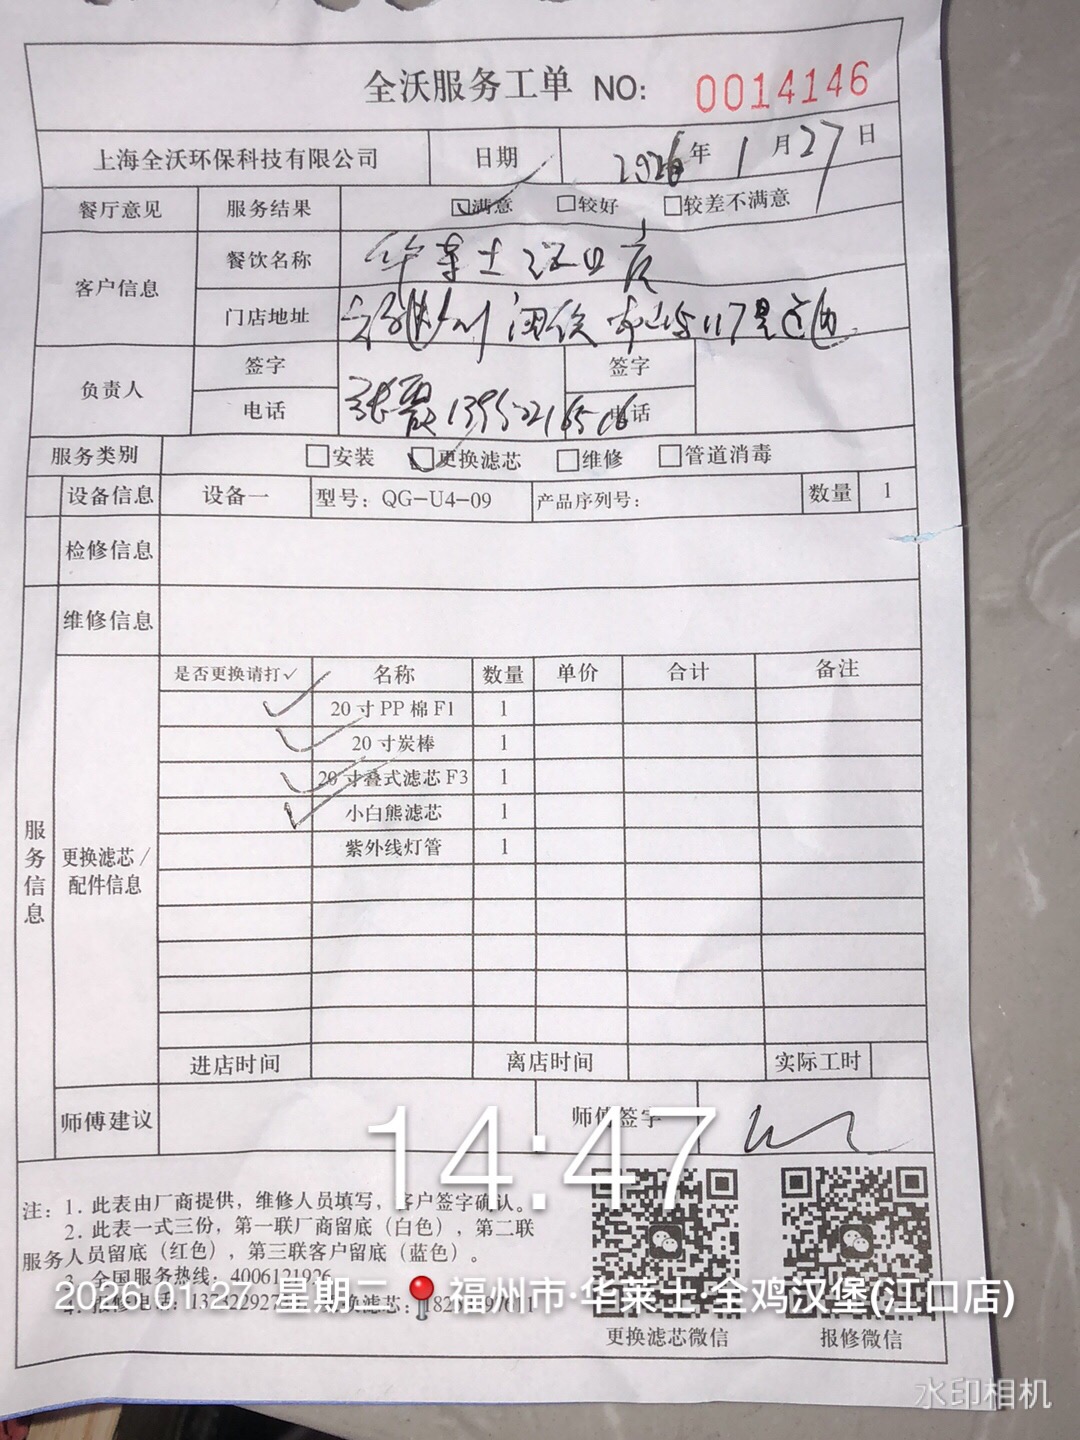 全沃服务工单 NO: 0014146
上海全沃环保科技有限公司 日期 2026年1月27日
餐厅意见 服务结果 ☑满意 □较好 □较差不满意
客户信息 餐饮名称 华莱士江口店
门店地址 福州
负责人 签字 签字
电话 张 电话
服务类别 □安装 ☑更换滤芯 □维修 □管道消毒
设备信息 设备一 型号：QG-U4-09 产品序列号： 数量 1
检修信息
维修信息
服务信息
更换滤芯/配件信息
是否更换请打✓ 名称 数量 单价 合计 备注
✓ 20寸PP棉F1 1
✓ 20寸炭棒 1
✓ 20寸叠式滤芯F3 1
✓ 小白熊滤芯 1
紫外线灯管 1
进店时间 离店时间 实际工时
师傅建议 师傅签字
14:47
注：1. 此表由厂商提供，维修人员填写，客户签字确认。
2. 此表一式三份，第一联厂商留底（白色），第二联
服务人员留底（红色），第三联客户留底（蓝色）。
3. 全国服务热线：4006121926
2026.01.27 星期二 福州市·华莱士·全鸡汉堡(江口店)
更换滤芯微信 报修微信
水印相机